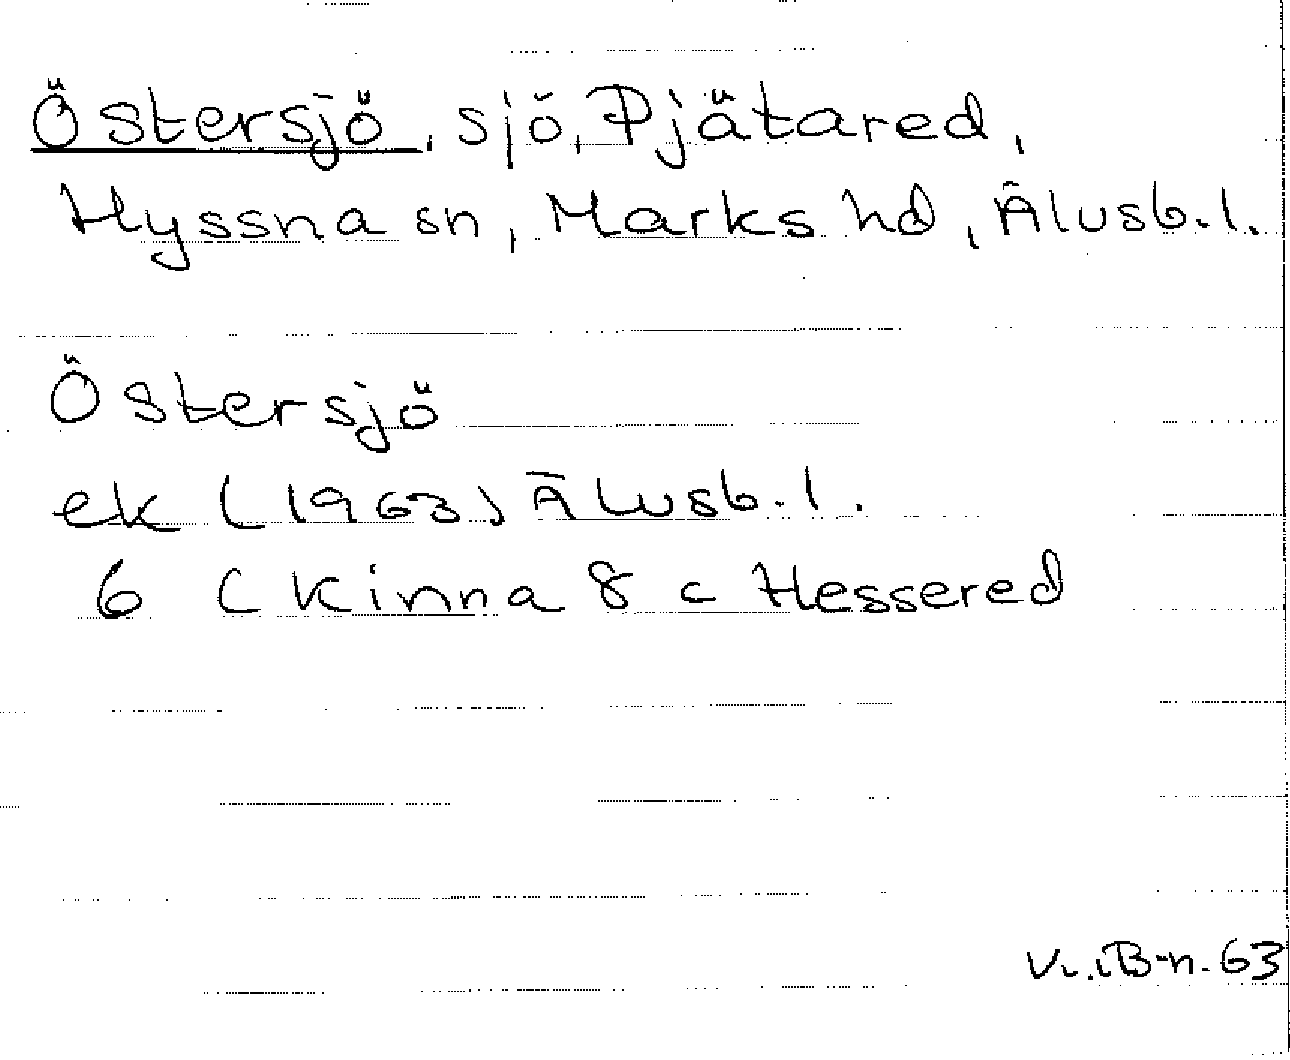 Östersjö, sjö, Pjätared,
Hyssna sn, Marks hd, Älvsb. l.
Östersjö
ek (1963) Älvsb. l.
6 (Kinna 8 c Hessered
63